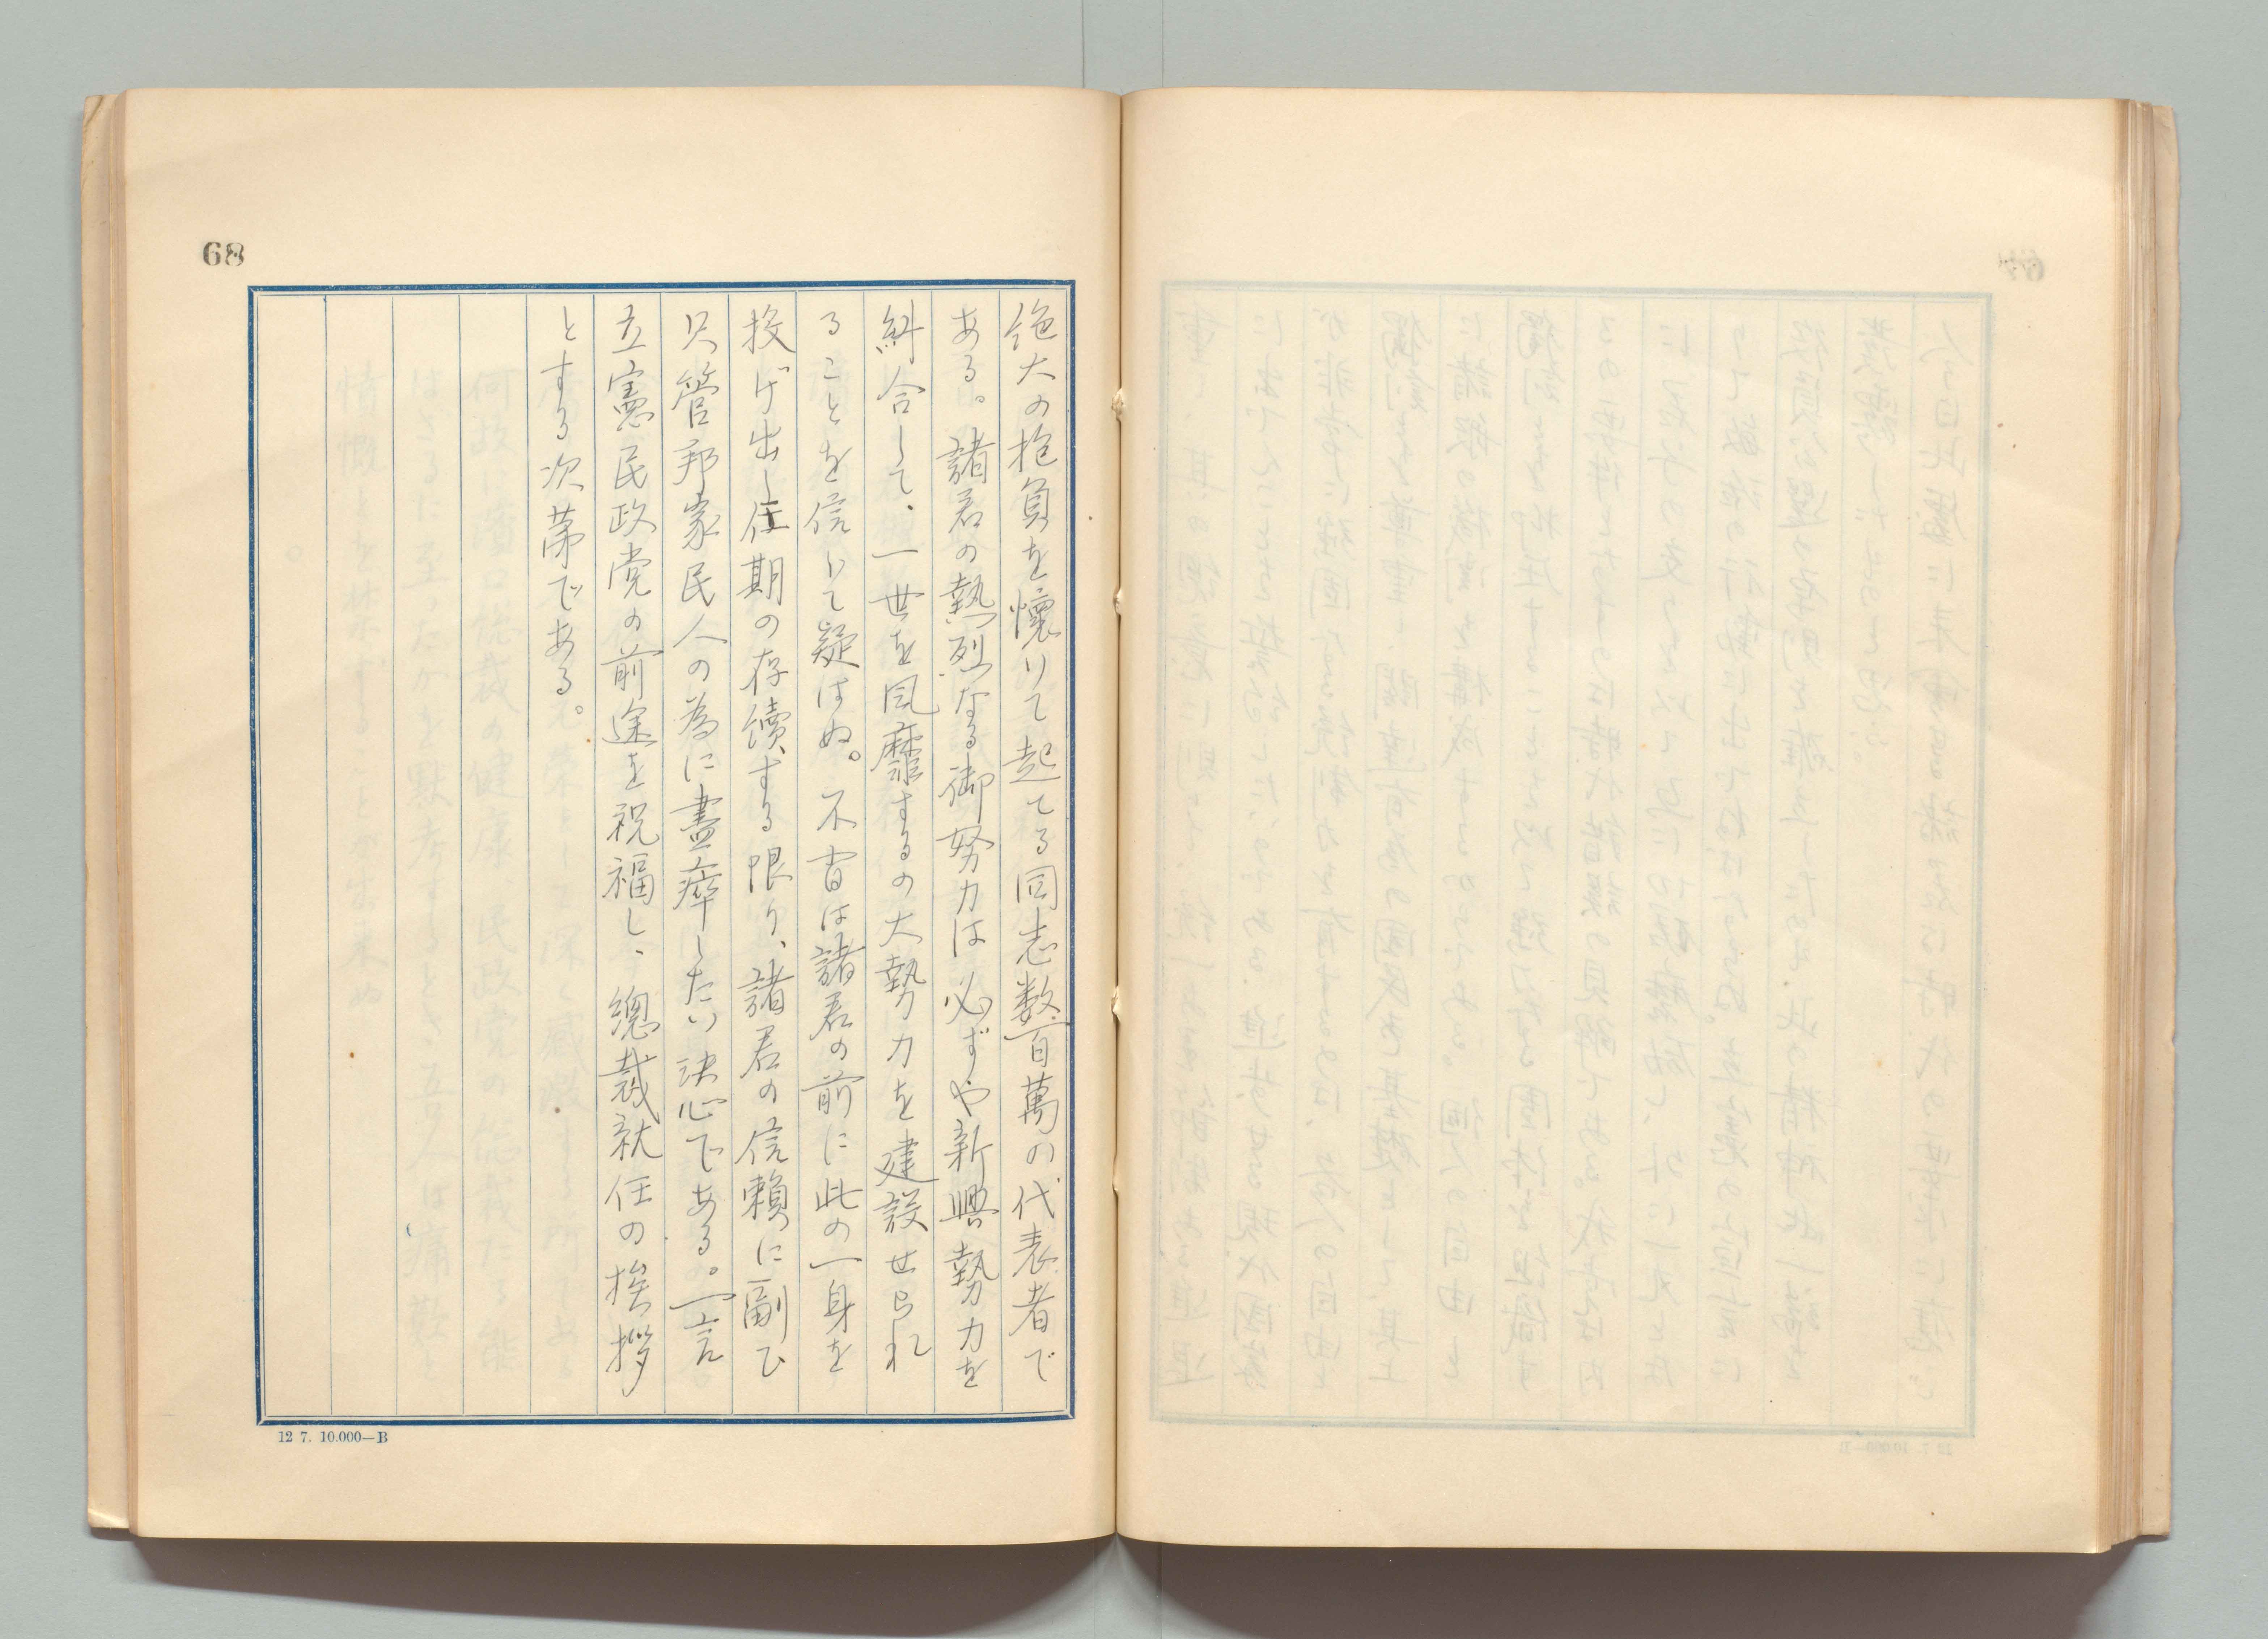 68
絶大の抱負を懐いて起てる同志数百萬の代表者で
ある。諸君の熱烈なる御努力は必ずや新興勢力を
糾合して、一世を風靡するの大勢力を建設せられ
ることを信いて疑はぬ。不肖は諸君の前に此の一身を
投げ出し任期の存續する限り、諸君の信頼に副ひ
只管邦家民人の為に盡瘁したい決心である。一言
立憲民政党の前途を祝福し、總裁就任の挨拶
とする次第である。
12 7. 10.000—B